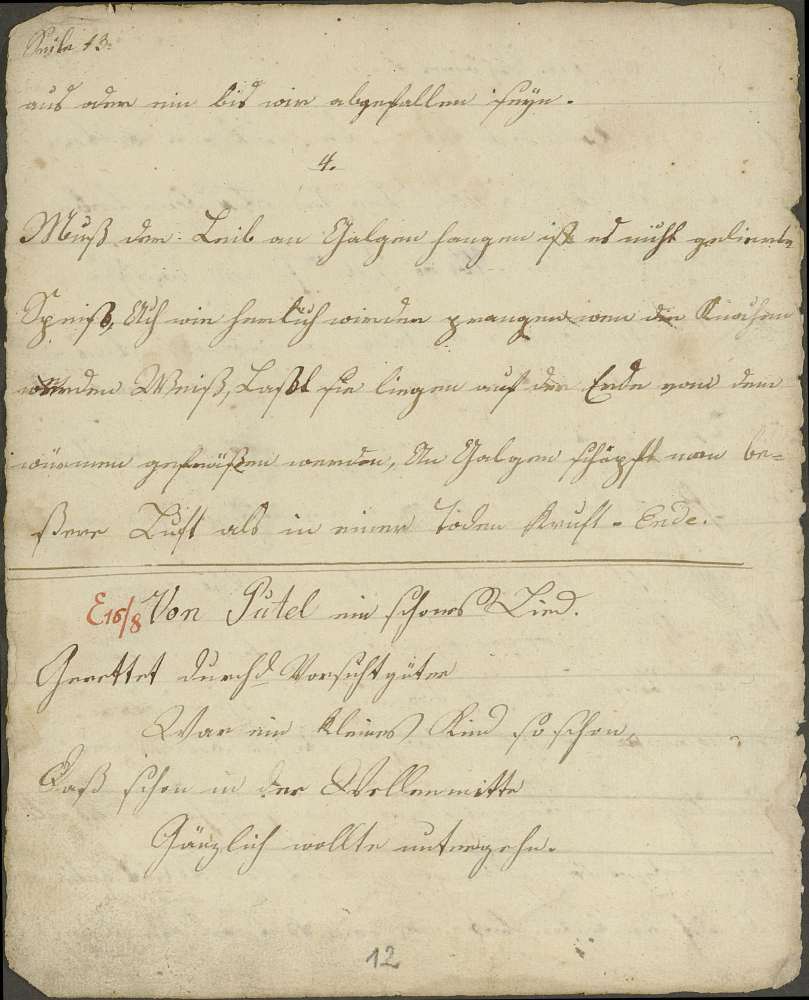 Seite 13.
aus oder ein bis wir abgefallen seyn.
4.
Muß der Leib an Galgen hangen ist es nicht geliente
Speiß, Ach wie herlich wir den prangen wen die Knochen
würden Weiß, Laßt sie liegen auf der Erde von dem
würmen gefräßen werden, An Galgen schöpft man be=
ßere Luft als in einer Toden Kruft - Ende.
E16/8 Von Putel ein schones Lied.
Gerettet durch d Vorsicht güte
War ein kleines Kind so schon,
Daß schon in der Wellenmitte
Gänzlich wollte untergehn.
12